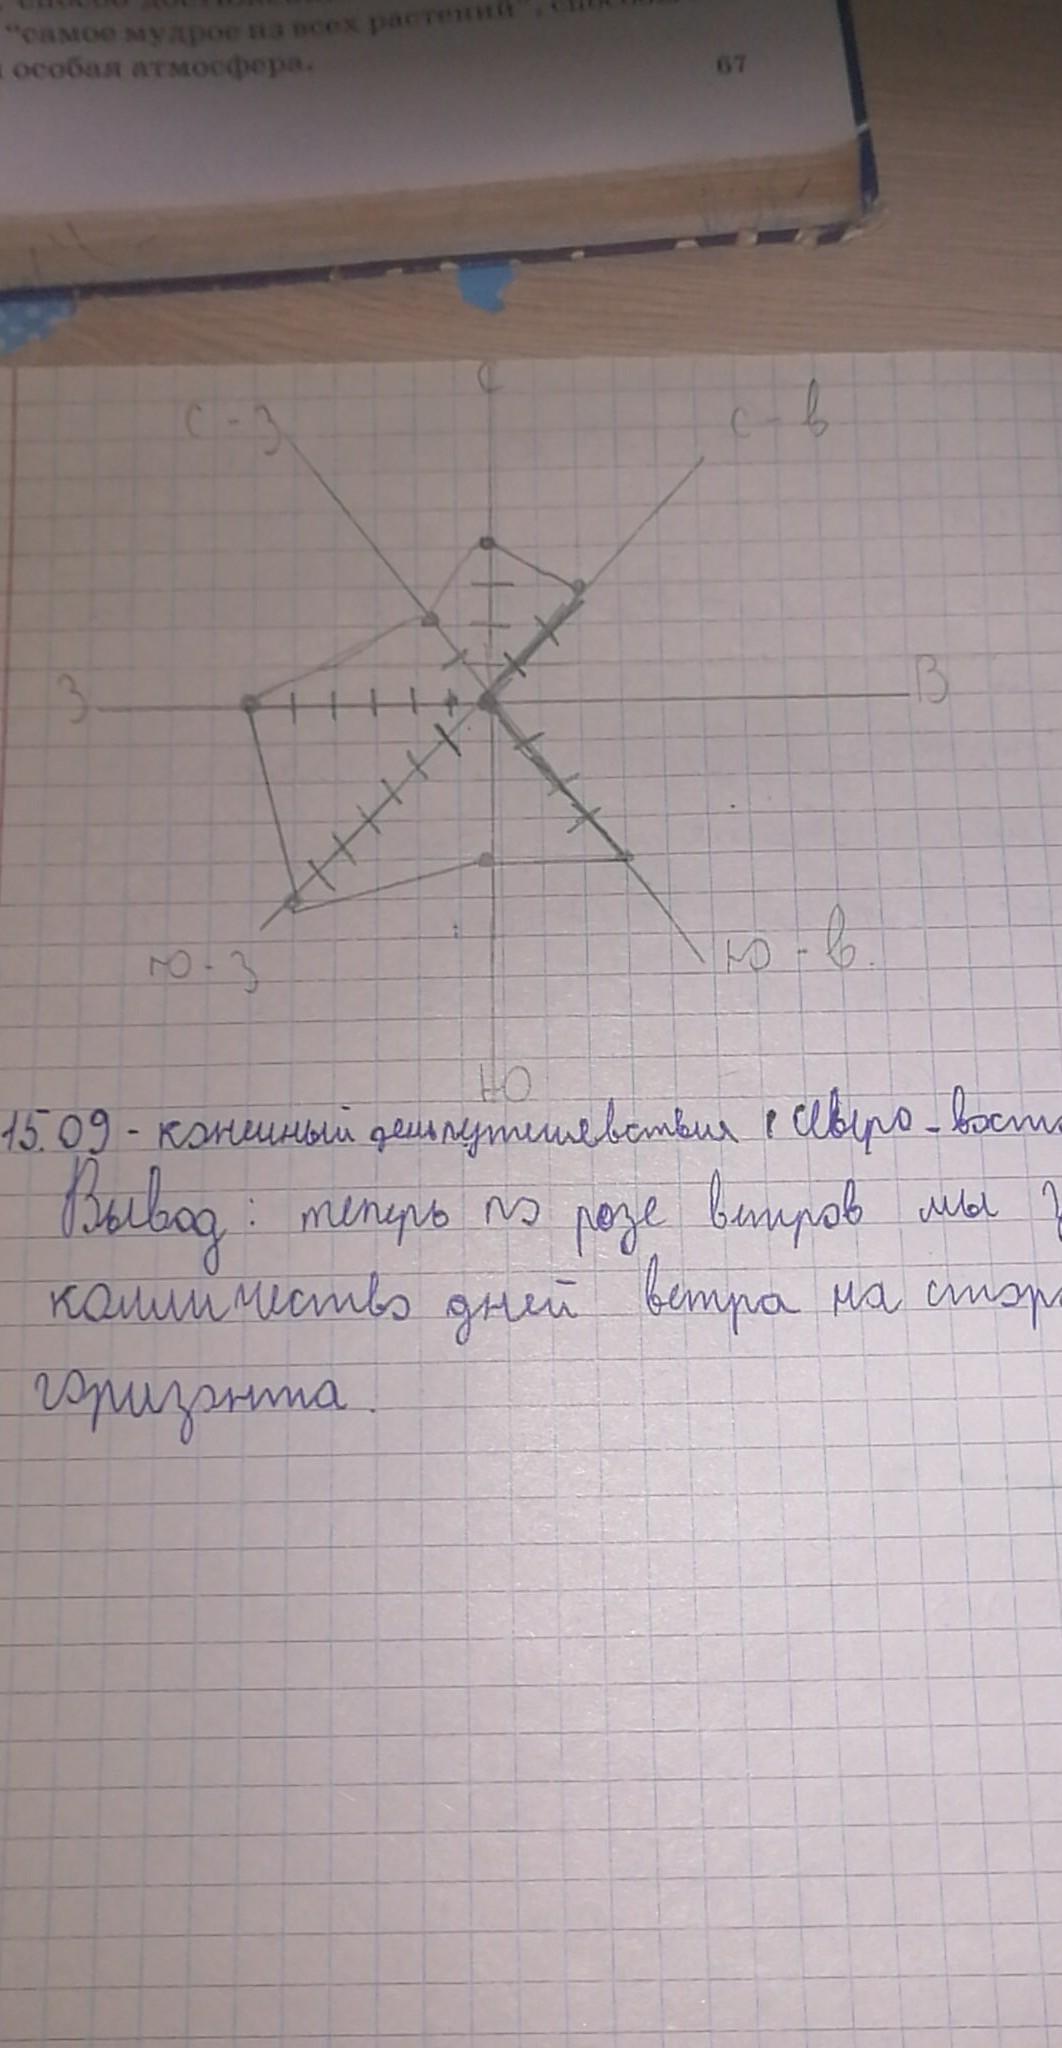 "самое мудрое из всех растений",
особая атмосфера.
67
С
С-З
С-в
З
В
Ю-З
Ю-в.
Ю
15.09 - конечный день путешевствия северо-вост
Вывод: теперь по розе ветров мы
колличество дней ветра на стор
горизонта.